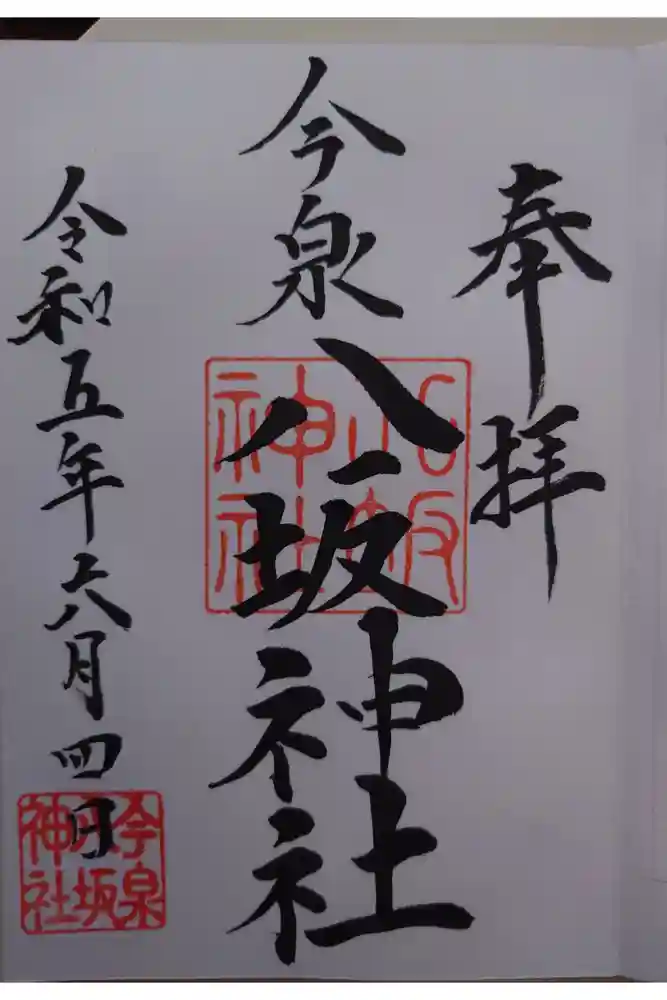 奉拝
今泉
八坂神社
令和五年六月四日
八坂神社
今泉八坂神社